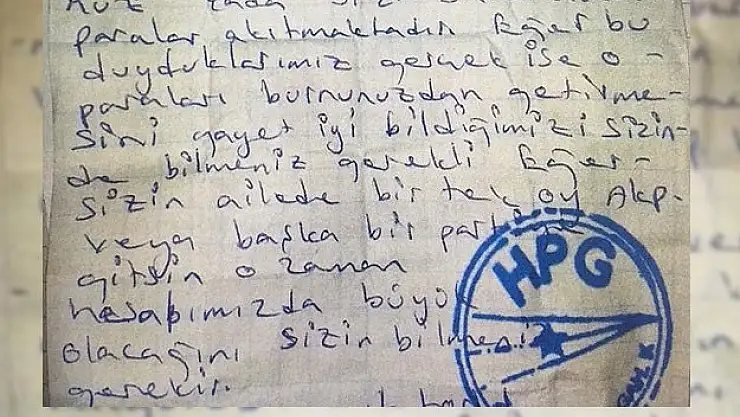 paralar akıtmaktadır Eğer bu
duyduklarımız gerçek ise o-
paraları burnunuzdan getirme-
sini gayet iyi bildiğimizi sizin-
de bilmeniz gerekli Eğer-
sizin ailede bir tek oy Akp.
veya başka bir
gitsin o zaman
hesabımızda büyük
olacağını sizin
gerekir.
HPG